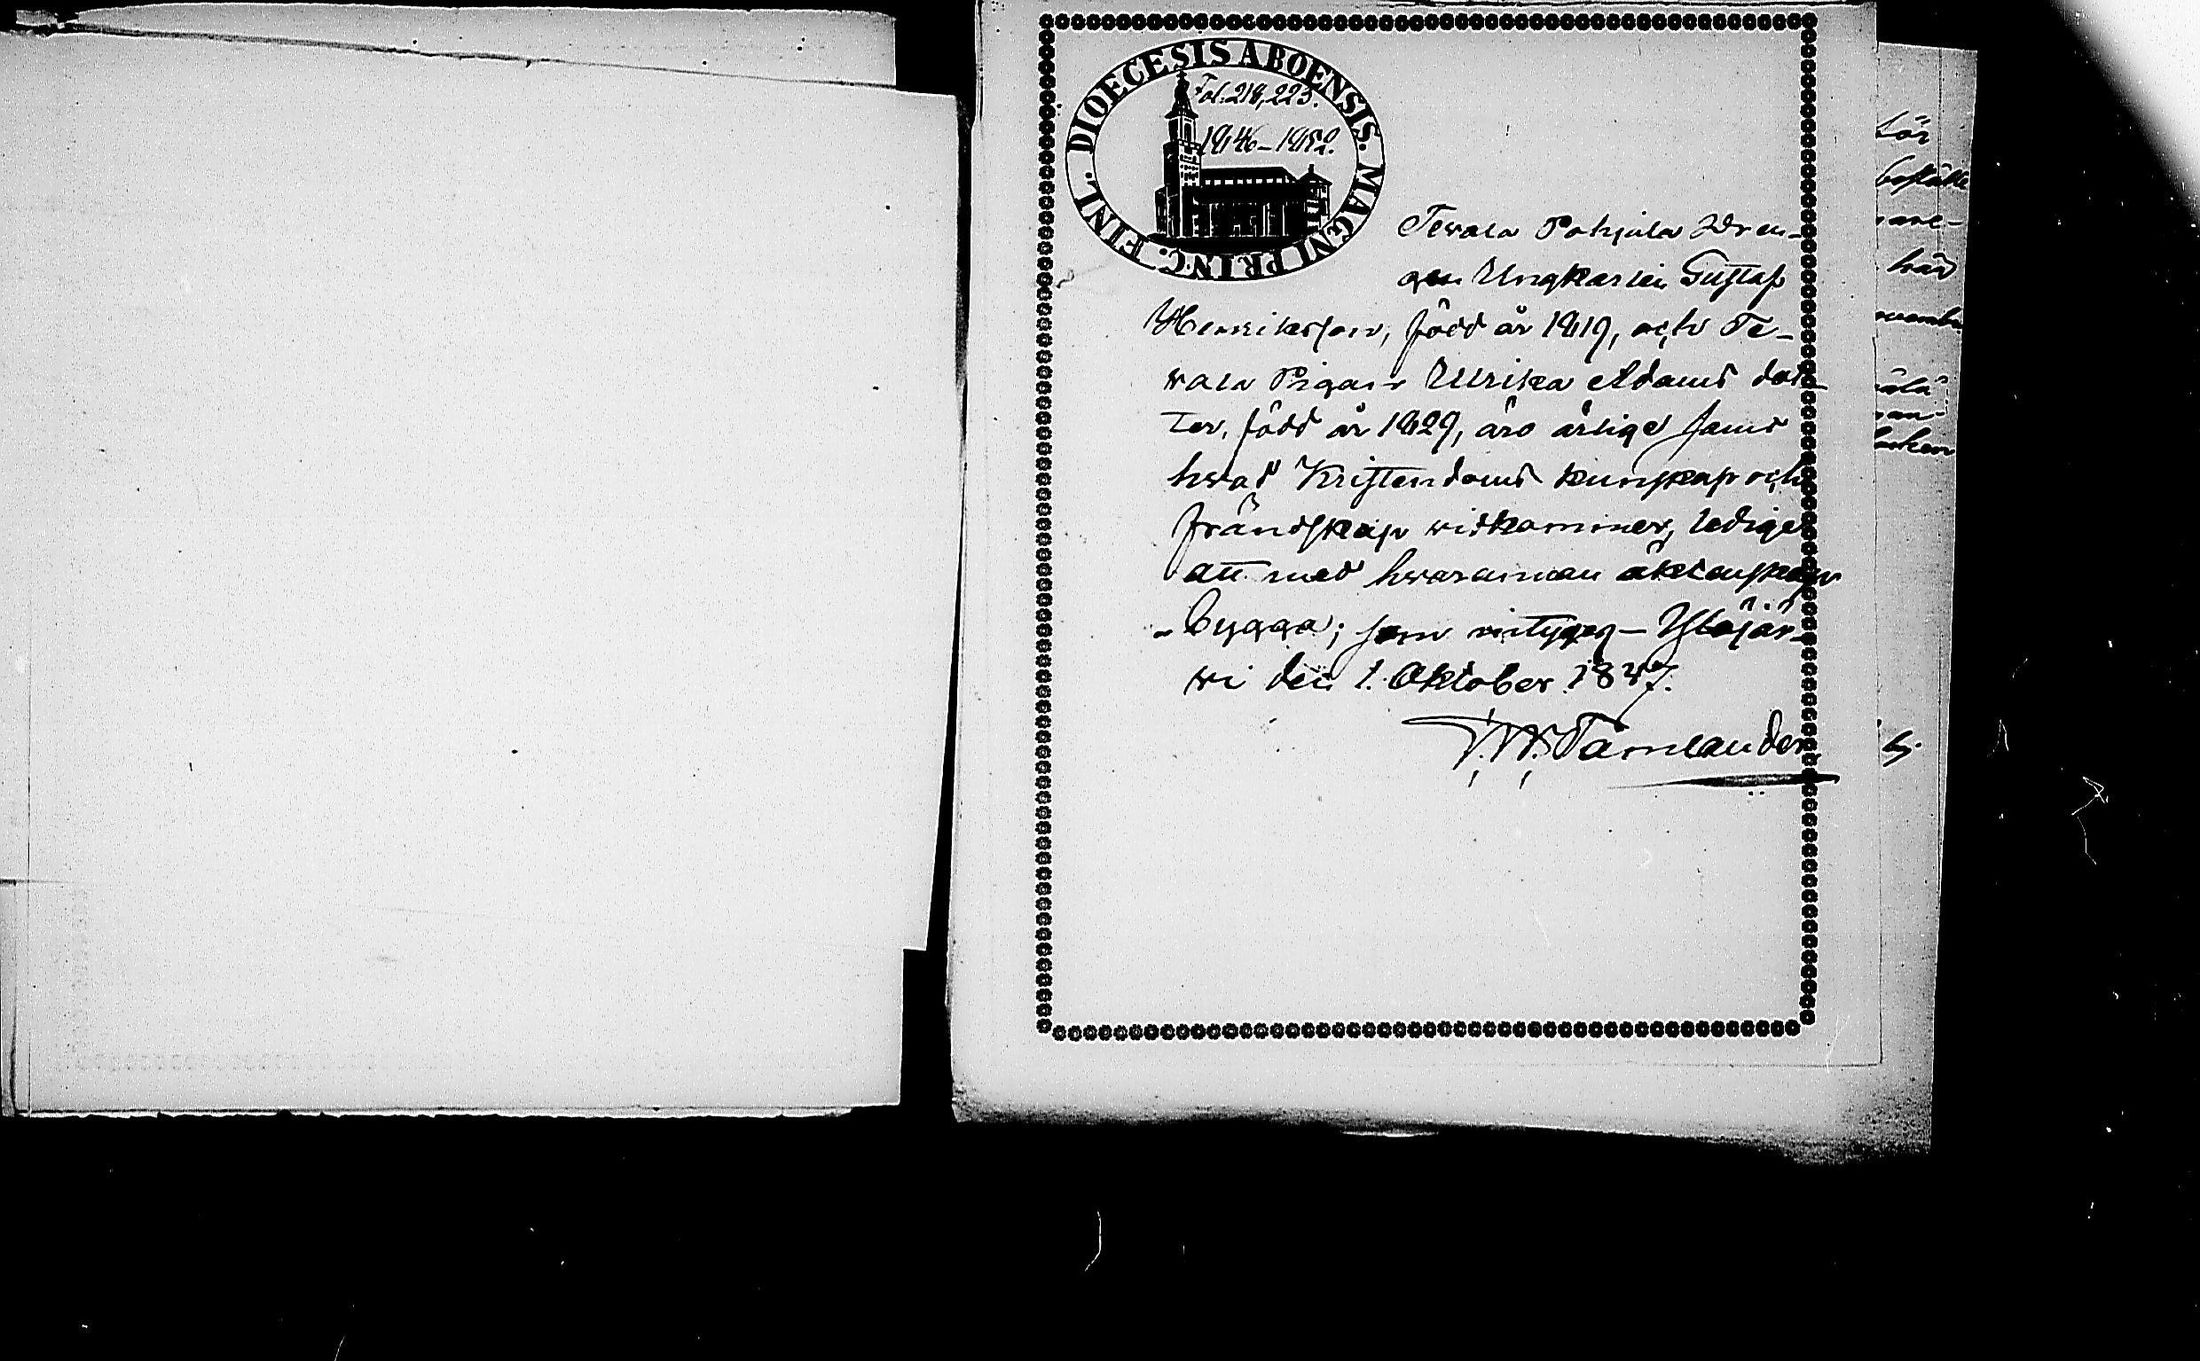 DIOECESIS ABOENSIS. MAGNI PRINC. FINL.
Fol. 218, 223.
1846–1852.
Tervala Pohjala Dren-
gen Ungkarlen Gustaf
Henriksson, född år 1819, och Te-
rvala Pigan Ulrika Adams dot-
ter, född år 1829, äro ärlige samt
hvad Kristendoms kunskap och
frändskap vidkommer, ledige
att med hvarannan äktenskap
bygga; som vittygas – Ylöjär-
vi den 1. Oktober 1847.
F. W. Tamlander
här